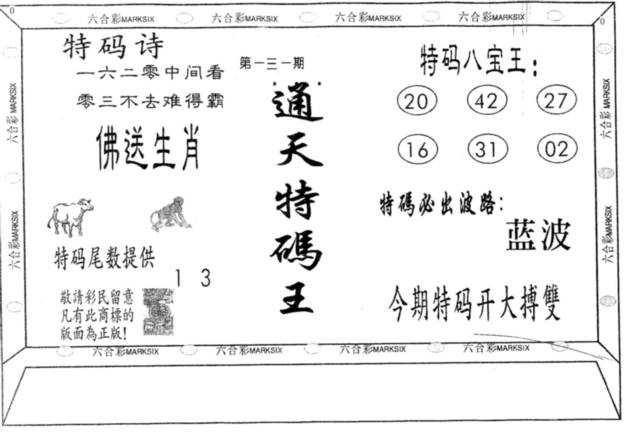 六合彩MARKSIX 六合彩MARKSIX 六合彩MARKSIX 六合彩MARKSIX
特码诗
一六二零中间看
零三不去难得霸
佛送生肖
特码尾数提供
1 3
敬請彩民留意
凡有此商標的
版面為正版!
第一三一期
通天特碼王
特码八宝王:
20 42 27
16 31 02
特碼必出波路:
蓝波
今期特码开大搏雙
六合彩MARKSIX
六合彩MARKSIX
六合彩MARKSIX
六合彩MARKSIX
六合彩MARKSIX 六合彩MARKSIX 六合彩MARKSIX 六合彩MARKSIX